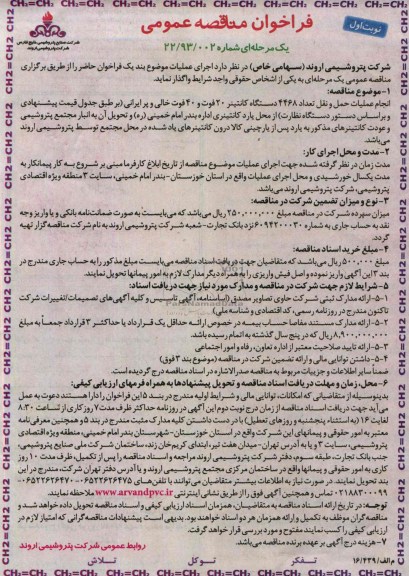 نوبت اول
فراخوان مناقصه عمومی
یک مرحله‌ای شماره ۲۲/۹۳/۰۰۲
شرکت پتروشیمی اروند (سهامی خاص) در نظر دارد اجرای عملیات موضوع بند یک فراخوان حاضر را از طریق برگزاری
مناقصه عمومی یک مرحله‌ای به یکی از اشخاص حقوقی واجد شرایط واگذار نماید.
۱-موضوع مناقصه:
انجام عملیات حمل و نقل تعداد ۴۴۶۸ دستگاه کانتینر ۲۰ فوت و ۴۰ فوت خالی و پر ایرانی (بر طبق جدول قیمت پیشنهادی
و براساس دستور دستگاه نظارت) از محل یارد کانتینری اداره بندر امام خمینی (ره) و تحویل آن به انبار مجتمع پتروشیمی
و عودت کانتینرهای مذکور به یارد پس از بارچینی کالا درون کانتینرهای یاد شده در محل مجتمع توسط پتروشیمی اروند
می‌باشد.
۲-مدت و محل اجرای کار:
مدت زمان در نظر گرفته شده جهت اجرای عملیات موضوع مناقصه از تاریخ ابلاغ کارفرما مبنی بر شروع به کار پیمانکار به
مدت یکسال خورشیدی و محل اجرای عملیات واقع در استان خوزستان-بندر امام خمینی، سایت ۳ منطقه ویژه اقتصادی
پتروشیمی، شرکت پتروشیمی اروند می‌باشد.
۳- نوع و میزان تضمین شرکت در مناقصه:
میزان سپرده شرکت در مناقصه مبلغ ۲۵۰,۰۰۰,۰۰۰ ریال می‌باشد که می‌بایست به صورت ضمانت‌نامه بانکی و یا واریز وجه
نقد به حساب جاری به شماره ۶۰۹۴۲۰۰۰۳۰ نزد بانک تجارت-شعبه شرکت پتروشیمی اروند به نام شرکت مناقصه‌گزار تهیه
گردد.
۴- مبلغ خرید اسناد مناقصه:
مبلغ ۵۰۰,۰۰۰ ریال می‌باشد که متقاضیان جهت دریافت اسناد مناقصه می‌بایست مبلغ مذکور را به حساب جاری مندرج در
بند ۳ این آگهی واریز نموده و اصل فیش واریزی را به همراه دیگر مدارک لازم به امور پیمانها تحویل نمایند.
۵- شرایط لازم جهت شرکت در مناقصه و مدارک مورد نیاز جهت دریافت اسناد:
۵-۱- ارائه مدارک ثبتی شرکت حاوی تصاویر مصدق (اساسنامه، آگهی تاسیس و کلیه آگهی‌های تصمیمات/تغییرات شرکت
تاکنون مندرج در روزنامه رسمی، کد اقتصادی و شناسه ملی)
۵-۲- ارائه مدارک مستند مفاصا حساب بیمه در خصوص ارائه حداقل یک قرارداد یا حداکثر ۳ قرارداد جمعاً به مبلغ
۸,۹۰۰,۰۰۰,۰۰۰ ریال که در پنج سال گذشته به اتمام رسیده باشد.
۵-۳- ارائه تایید صلاحیت معتبر از اداره تعاون، رفاه و امور اجتماعی
۵-۴- داشتن توانایی مالی و ارائه تضمین شرکت در مناقصه (موضوع بند ۳ فوق)
ضمناً سایر اطلاعات و جزییات مربوط به مناقصه صدرالاشاره در اسناد مناقصه درج گردیده است.
۶- محل، زمان و مهلت دریافت اسناد مناقصه و تحویل پیشنهادها به همراه فرمهای ارزیابی کیفی:
بدینوسیله از متقاضیانی که امکانات، توانایی مالی و شرایط اولیه مندرج در بند ۵ این فراخوان را دارا هستند دعوت به عمل
می‌آید جهت دریافت اسناد مناقصه از زمان درج نوبت دوم این آگهی در روزنامه حداکثر ظرف مدت ۷ روز کاری از ساعت ۸:۳۰
لغایت ۱۶ (به استثناء پنجشنبه و روزهای تعطیل) با در دست داشتن کلیه مدارک مثبت مندرج در بند ۵ و همچنین معرفی‌نامه
معتبر به امور حقوقی و پیمانهای این شرکت واقع در استان خوزستان-شهرستان بندر امام خمینی، منطقه ویژه اقتصادی
پتروشیمی، سایت ۳ و یا به آدرس تهران-میدان هفت تیر، ابتدای کریم خان زند، ساختمان شرکت ملی صنایع پتروشیمی،
جنب بانک تجارت، طبقه سوم، دفتر شرکت پتروشیمی اروند مراجعه و اسناد مناقصه را پس از تکمیل، ظرف مدت ۱۰ روز
کاری به امور حقوقی و پیمانها واقع در ساختمان مرکزی مجتمع پتروشیمی اروند و یا آدرس دفتر تهران شرکت، مندرج در این
بند تحویل نمایند. در صورت نیاز به اطلاعات بیشتر متقاضیان می‌توانند با تلفن‌های ۰۶۵۲۲۶۲۶۴۷۵-۰۶۵۲۲۶۲۶۴۷۰-
۰۲۱۸۸۳۰۰۰۹۹ تماس و همچنین آگهی فوق را از طریق نشانی اینترنتی www.arvandpvc.ir ملاحظه نمایند.
توجه: در تاریخ ارائه اسناد مناقصه به متقاضیان، همزمان اسناد ارزیابی کیفی و اسناد مناقصه تحویل داده خواهد شد و
مناقصه‌گران موظف به تکمیل و ارائه همزمان هر دو اسناد خواهند بود. بدیهی است پیشنهادات مناقصه‌گرانی که امتیاز لازم در
ارزیابی کیفی را کسب نمایند مفتوح و مورد بررسی قرار خواهد گرفت.
۷-هزینه درج آگهی بر عهده برنده مناقصه می‌باشد.
روابط عمومی شرکت پتروشیمی اروند
م الف/۱۶/۴۳۹
تفکر توکل تلاش